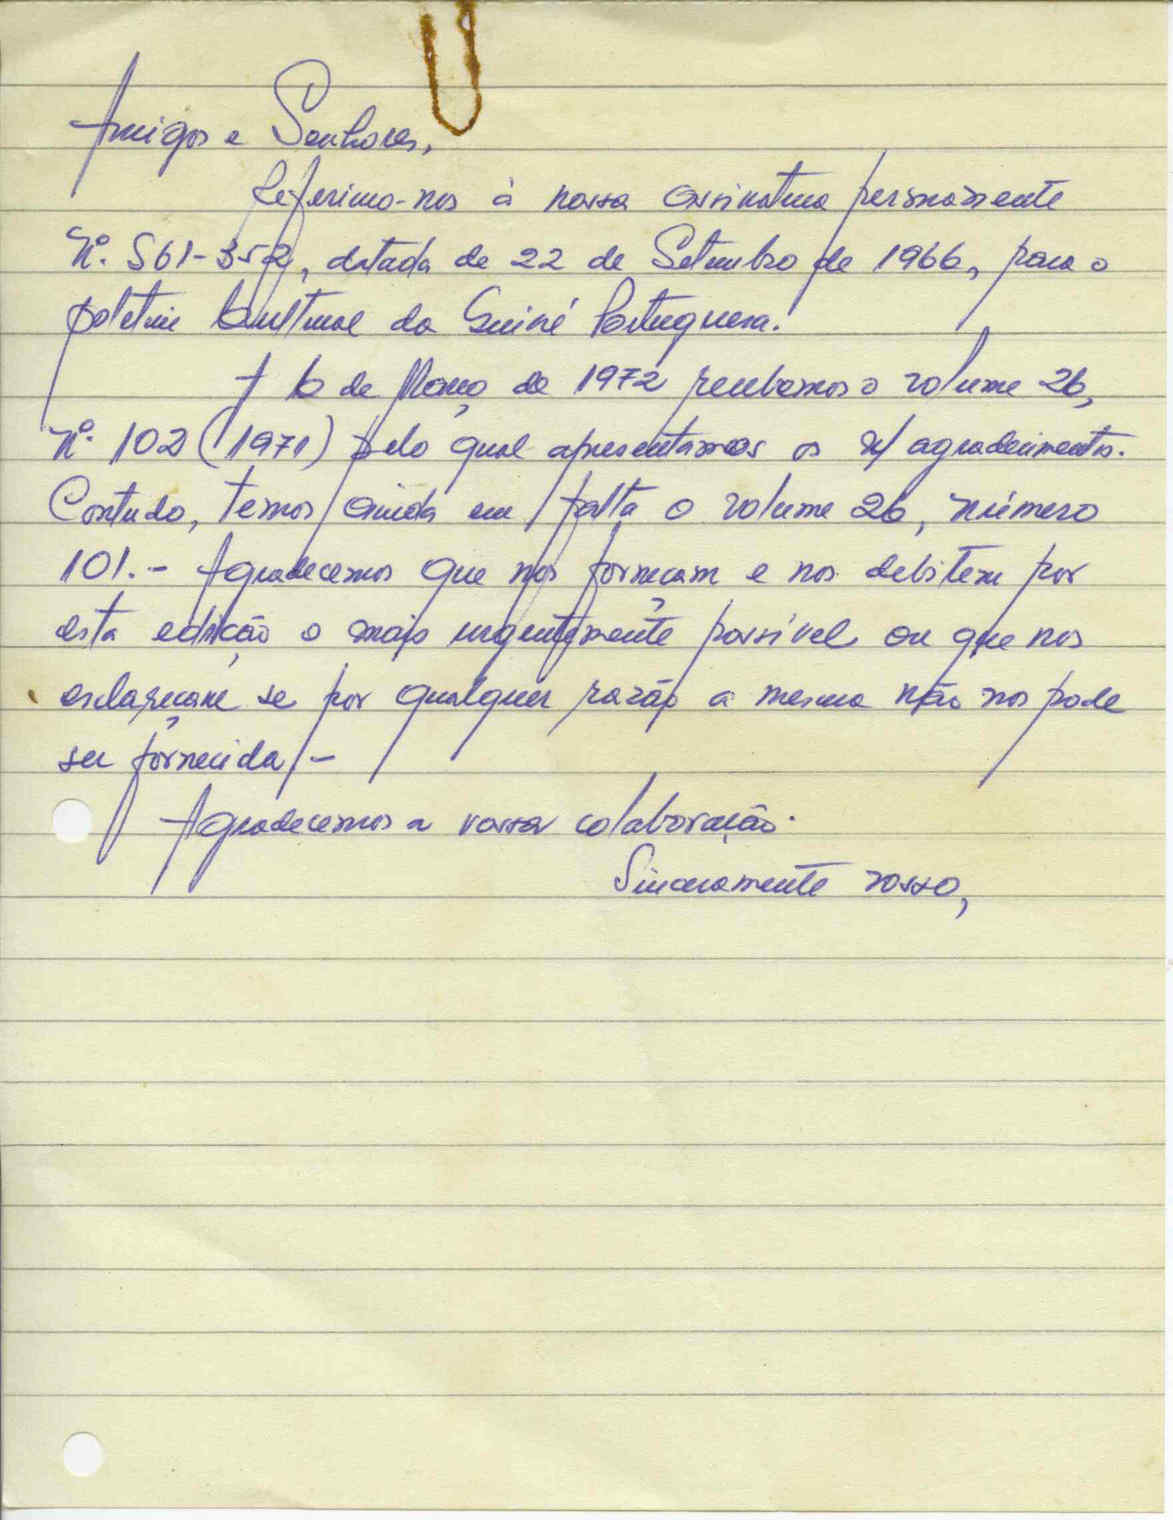 Amigos e Senhores,
Referimo-nos à nossa assinatura permanente
Nº. S61-352, datada de 22 de Setembro de 1966, para o
Boletim Cultural da Guiné Portuguesa.
A 6 de Março de 1972 recebemos o volume 26,
Nº. 102 (1971) pelo qual apresentamos os n/ agradecimentos.
Contudo, temos ainda em falta o volume 26, número
101.- Agradecemos que nos forneçam e nos debitem por
esta edição o mais urgentemente possível ou que nos
esclareçam se por qualquer razão a mesma não nos pode
ser fornecida.-
Agradecemos a vossa colaboração.
Sinceramente vosso,